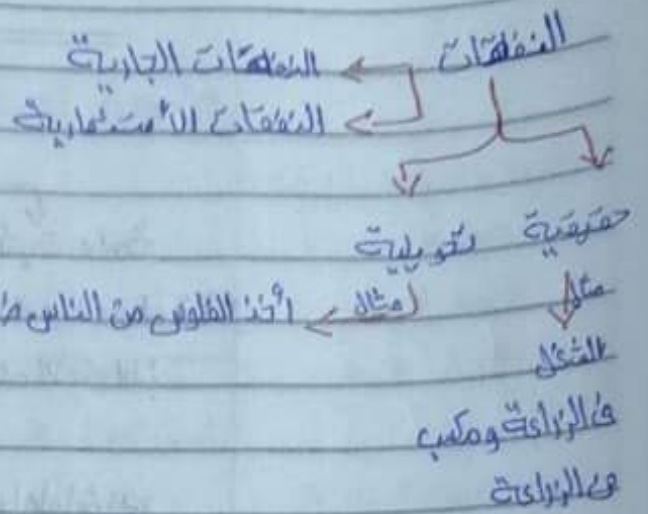 النفقات
النفقات الجارية
النفقات الأستثمارية
حقيقية تحويلية
مثال
مثال أخذ الفلوس من الناس
الشغل
في الزراعة ومكسب
من الزراعة